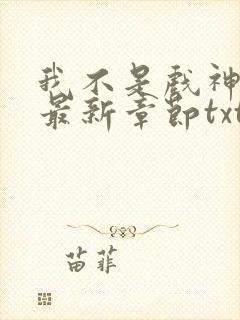 我不是戏神
最新章节txt
苗菲